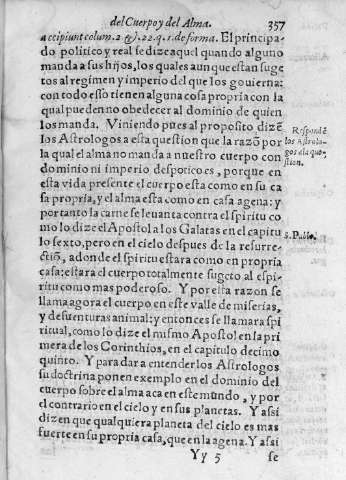 del Cuerpo y del Alma. 357
accipiunt colum. 2 &. 22. q. 1. de forma. El principa-
do politico y real se dize aquel quando alguno
manda a sus hijos, los quales aunque estan suge
tos al regimen y imperio del que los gouierna:
con todo esso tienen alguna cosa propria con la
qual pueden no obedecer al dominio de quien
los manda. Viniendo pues al proposito dizẽ
los Astrologos a esta question que la razõ por
la qual el alma no manda a nuestro cuerpo con
dominio ni imperio despotico es, porque en
esta vida presente el cuerpo esta como en su ca
sa propria, y el alma esta como en casa agena: y
por tanto la carne se leuanta contra el spiritu co
mo lo dize el Apostol a los Galatas en el capitu
lo sexto, pero en el cielo despues de la resurre-
ctiõ, adonde el spiritu estara como en propria
casa: estara el cuerpo totalmente sugeto al espi-
ritu como mas poderoso. Y por esta razon se
llama agora el cuerpo en este valle de miserias,
y desuenturas animal: y entonces se llamara spi
ritual, como lo dize el mismo Apostol en la pri
mera de los Corinthios, en el capitulo decimo
quinto. Y para dar a entender los Astrologos
su doctrina ponen exemplo en el dominio del
cuerpo sobre el alma aca en este mũdo, y por
el contrario en el cielo y en sus planetas. Y assi
dizen que qualquiera planeta del cielo es mas
fuerte en su propria casa, que en la agena. Y assi
Yy 5 se
Respondẽ
los Astrolo-
gos a la que-
stion.
S. Pablo.